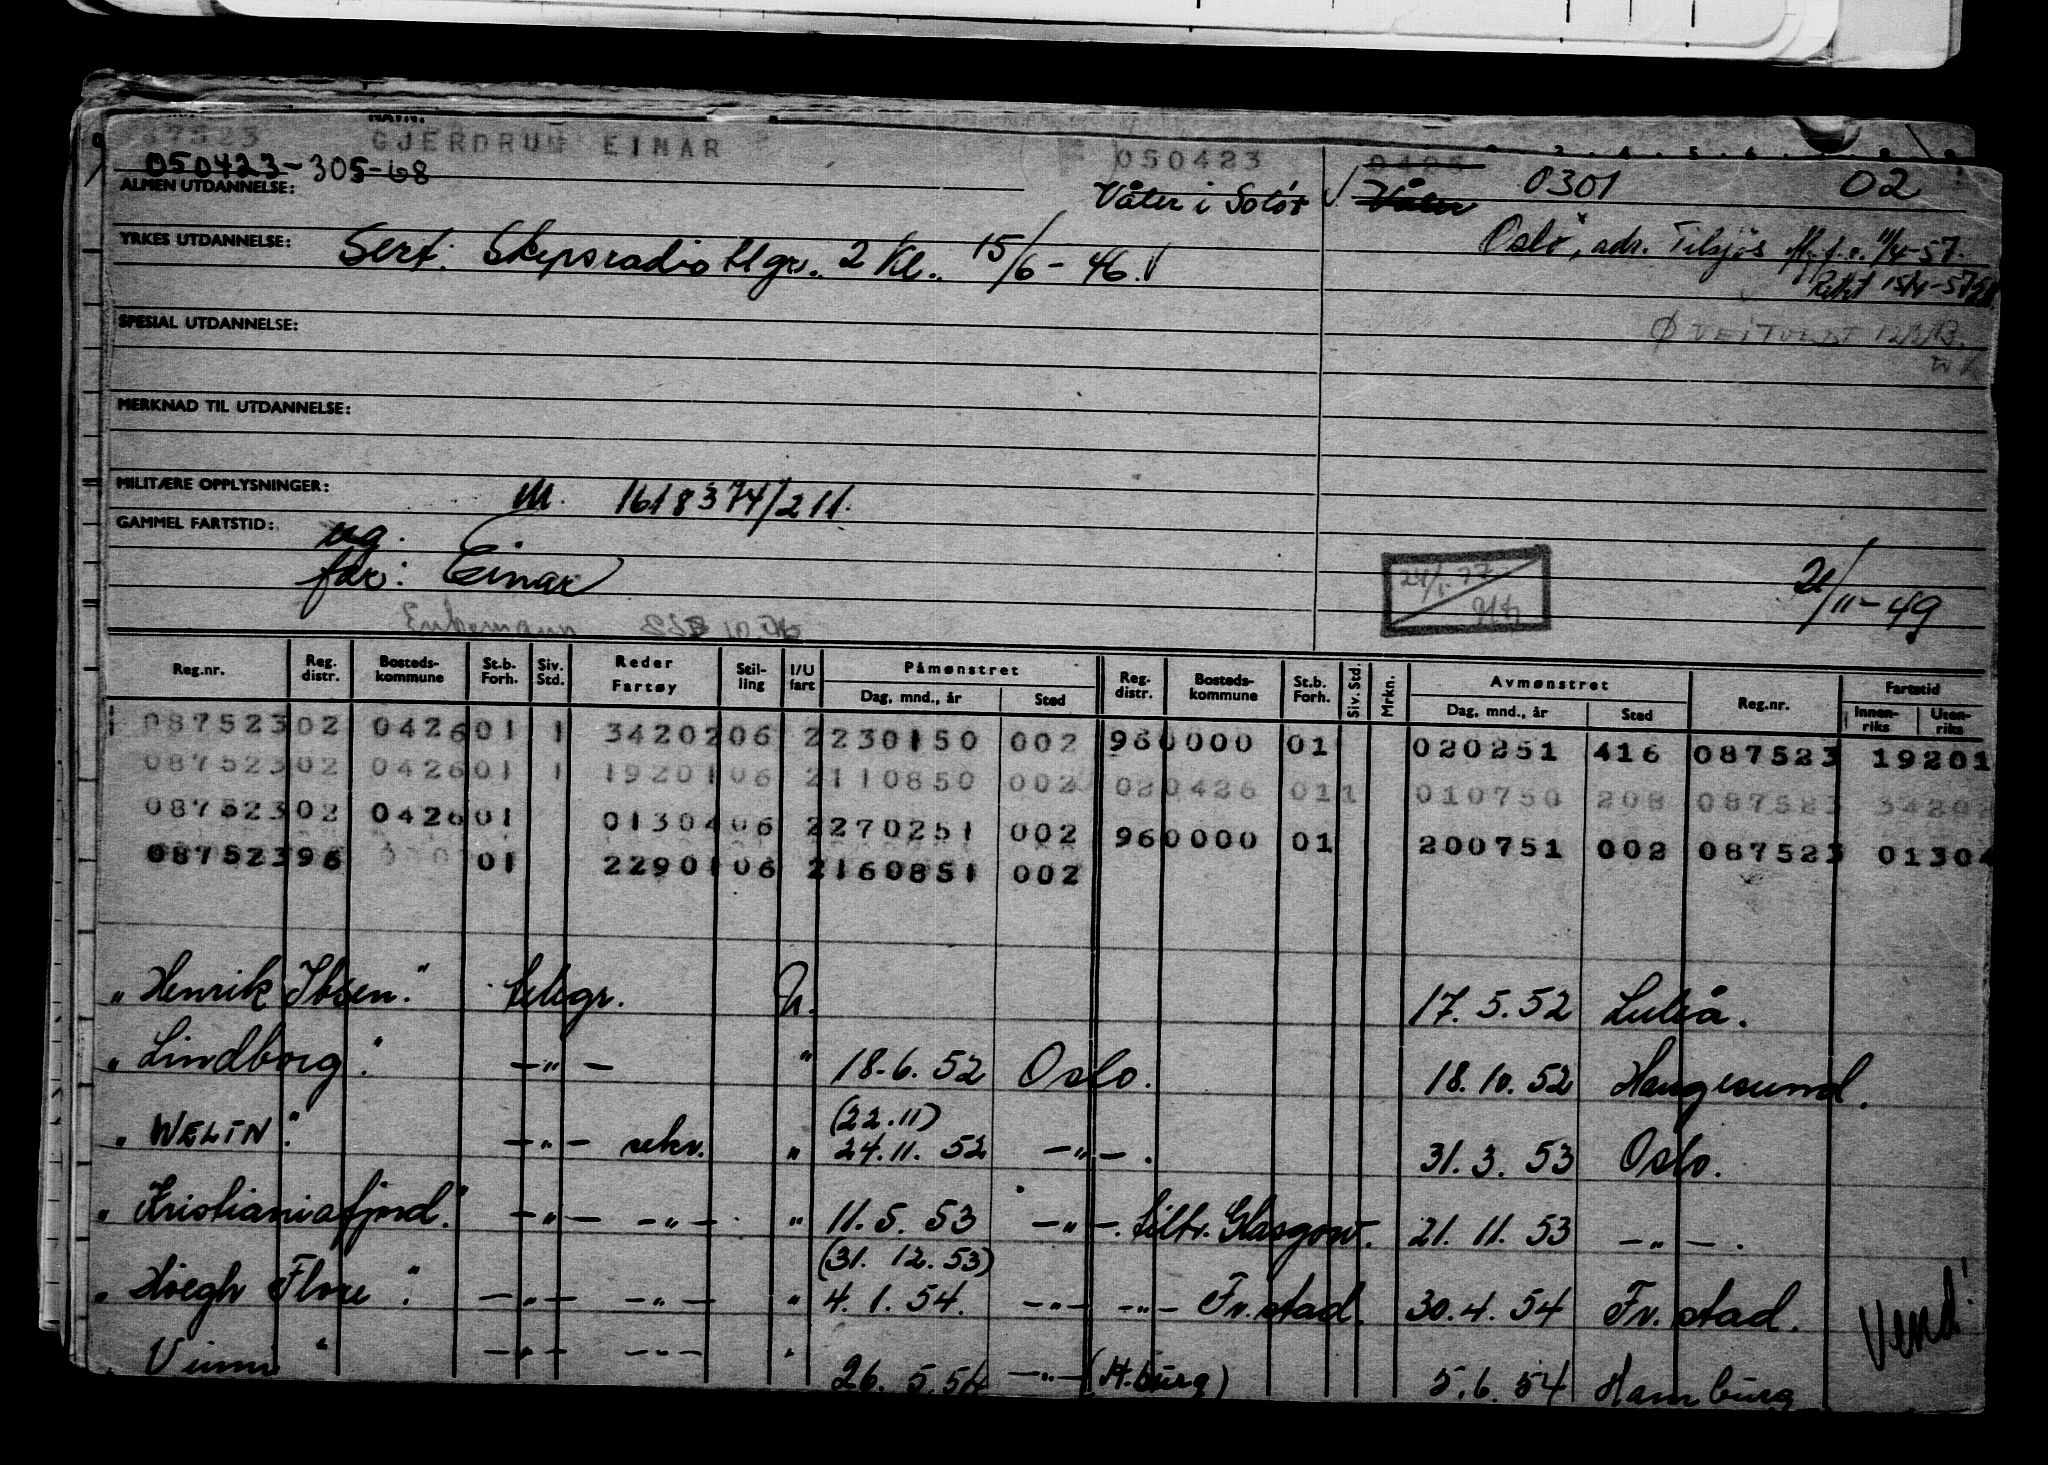 87523 NAVN: GJERDRUM EINAR F 050423 0425
050423-305-68 0301 02
ALMEN UTDANNELSE: Våler i Solør √ Våler
YRKES UTDANNELSE: Sert. Skipsradiotlgr. 2 Kl. 15/6 - 46. √ Oslo, adr. Tilsjøs 11/4-57.
SPESIAL UTDANNELSE:
MERKNAD TIL UTDANNELSE:
MILITÆRE OPPLYSNINGER: M. 1618374/211.
GAMMEL FARTSTID: ug.
far: Einar 24/1.77 21/11-49
Reg.nr. Reg. distr. Bosteds-kommune St.b. Forh. Siv. Std. Reder Fartøy Stil-ling I/U fart Påmønstret Dag, mnd., år Sted Reg. distr. Bosteds-kommune St.b. Forh. Siv. Std. Mrkn. Avmønstret Dag, mnd., år Sted Reg.nr. Fartstid Innen-riks Uten-riks
087523 02 0426 01 1 34202 06 2 230150 002 96 0000 01 020251 416 087523 19201
087523 02 0426 01 1 19201 06 2 110850 002 02 0426 01 1 010750 208 087523 34202
087523 02 0426 01 01304 06 2 270251 002 96 0000 01 200751 002 087523 01304
087523 96 01 22901 06 2 160851 002
"Henrik Ibsen." telegr. U. 17. 5. 52 Luleå.
"Lindborg". -"- " 18. 6. 52 Oslo. 18. 10. 52 Haugesund.
(22.11)
"WELIN". -"- rekv. " 24. 11. 52 -"-. 31. 3. 53 Oslo.
"Kristianiafjord." -"- -"- " 11. 5. 53 -"-. tiltr. Glasgow. 21. 11. 53 -"-.
(31. 12. 53)
"Høegh Flore". -"- -"- " 4. 1. 54. -"- -"- Fr.stad. 30. 4. 54 Fr.stad.
Vend!
"Vinni" -"- -"- " 26. 5. 54 -"- (H.burg) 5. 6. 54 Hamburg